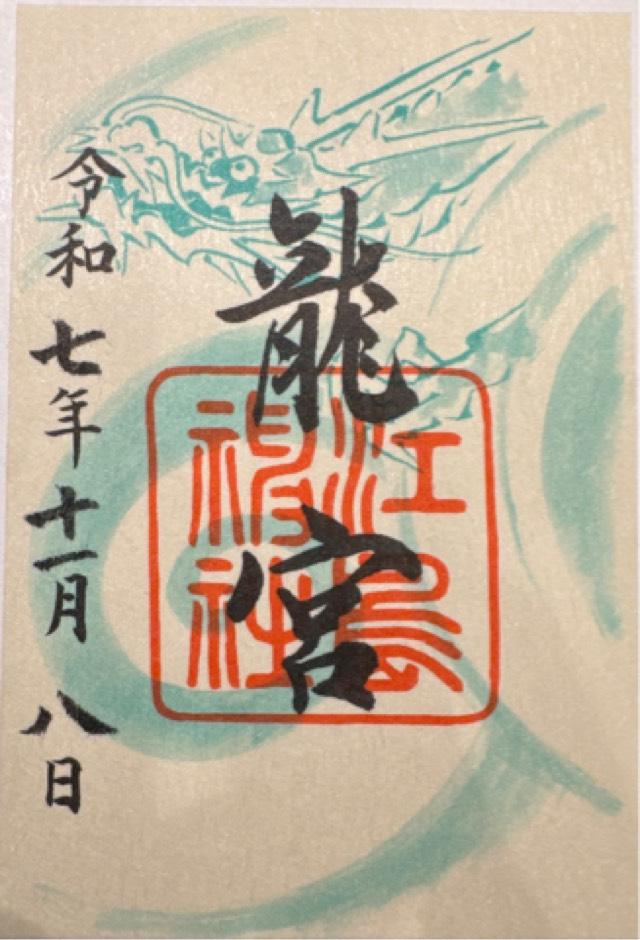 龍宮
江島
神社
令和七年十一月八日